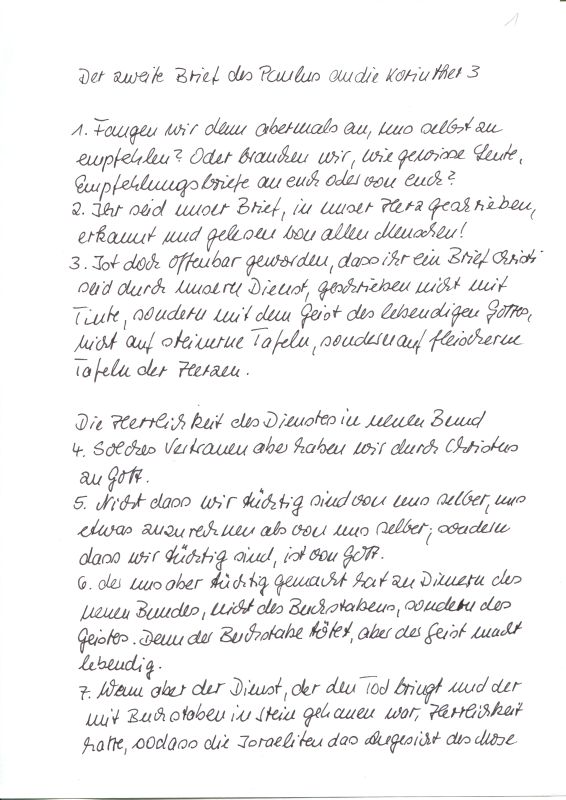 1
Der zweite Brief des Paulus an die Korinther 3
1. Fangen wir denn abermals an, uns selbst zu
empfehlen? Oder brauchen wir, wie gewisse Leute,
Empfehlungsbriefe an euch oder von euch?
2. Ihr seid unser Brief, in unser Herz geschrieben,
erkannt und gelesen von allen Menschen!
3. Ist doch offenbar geworden, dass ihr ein Brief Christi
seid durch unsern Dienst, geschrieben nicht mit
Tinte, sondern mit dem Geist des lebendigen Gottes,
nicht auf steinerne Tafeln, sondern auf fleischerne
Tafeln der Herzen.
Die Herrlichkeit des Dienstes in neuen Bund
4. Solches Vertrauen aber haben wir durch Christus
zu Gott.
5. Nicht dass wir tüchtig sind von uns selber, uns
etwas zuzurechnen als von uns selber; sondern
dass wir tüchtig sind, ist von Gott.
6. der uns aber tüchtig gemacht hat zu Dienern des
neuen Bundes, nicht des Buchstabens, sondern des
Geistes. Denn der Buchstabe tötet, aber der Geist macht
lebendig.
7. Wenn aber der Dienst, der den Tod bringt und der
mit Buchstaben in Stein gehauen war, Herrlichkeit
hatte, sodass die Israeliten das Angesicht des Mose